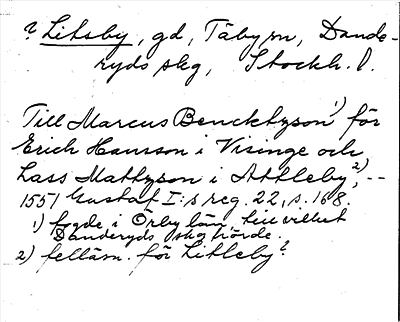 ? Litsby, gd, Täby sn, Dande-
ryds skg, Stockh. l.
Till Marcus Bencktzson 1) för
Erich Hansson i Visinge och
Lass Mattzson i Attleby, 2) --
1551 Gustaf I:s reg. 22, s. 168.
1) fogde i Örby län till vilket
Danderyds skg hörde.
2) felläsn. för Litleby?